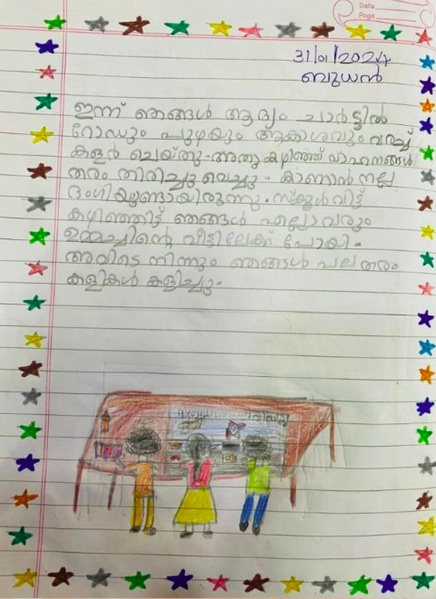 Date
Page
31/01/2024
ബുധൻ
ഇന്ന് ഞങ്ങൾ ആദ്യം ചാർട്ടിൽ
റോഡും പുഴയും ആകാശവും വരച്ച്
കളർ ചെയ്തു. അതു കഴിഞ്ഞ് വാഹനങ്ങൾ
തരം തിരിച്ചു വെച്ചു. കാണാൻ നല്ല
ഭംഗിയുണ്ടായിരുന്നു. സ്കൂൾ വിട്ട്
കഴിഞ്ഞിട്ട് ഞങ്ങൾ എല്ലാവരും
ഉമ്മച്ചിന്റെ വീട്ടിലേക്ക് പോയി.
അവിടെ നിന്നും ഞങ്ങൾ പല തരം
കളികൾ കളിച്ചു.